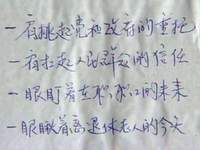 一肩挑起党和政府的重托
一肩扛起人民群众的信任
一眼盯着在职职工的未来
一眼瞅着离退休老人的今天